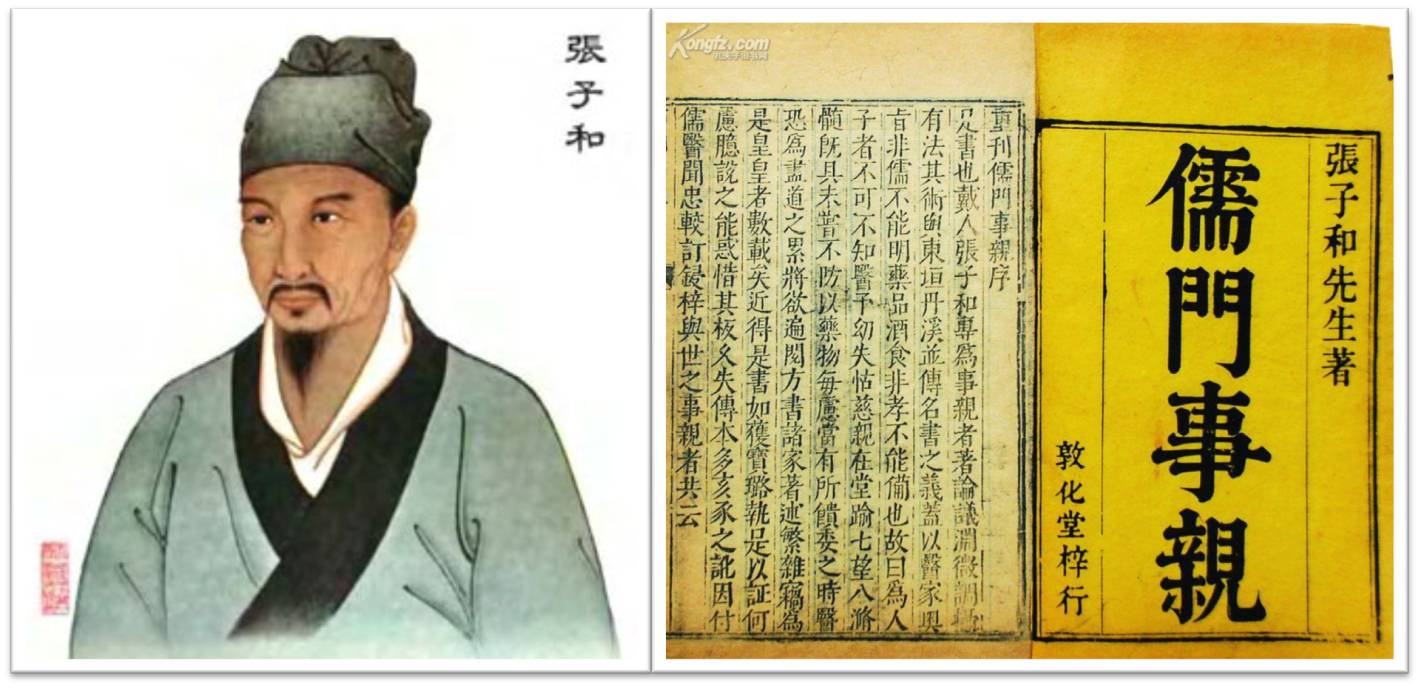 張子和
Kongfz.com
孔夫子旧书网
張子和先生著
儒門事親
敦化堂梓行
重刊儒門事親序
是書也戴人張子和專爲事親者著論議淵微調
有法其術與東垣丹溪並傳名書之義蓋以醫家奧
旨非儒不能明藥品酒食非孝不能備也故曰爲人
子者不可不知醫予幼失怙慈親在堂踰七望八滫
髓旣具未嘗不防以藥物每慮當有所饋委之時醫
恐爲盡道之累將欲遍閱方書諸家著述繁雜竊爲
是皇皇者數載矣近得是書如獲寶璐執足以証何
慮臆說之能惑惜其板久失傳本多亥豕之訛因付
儒醫聞忠較訂鋟梓與世之事親者共云